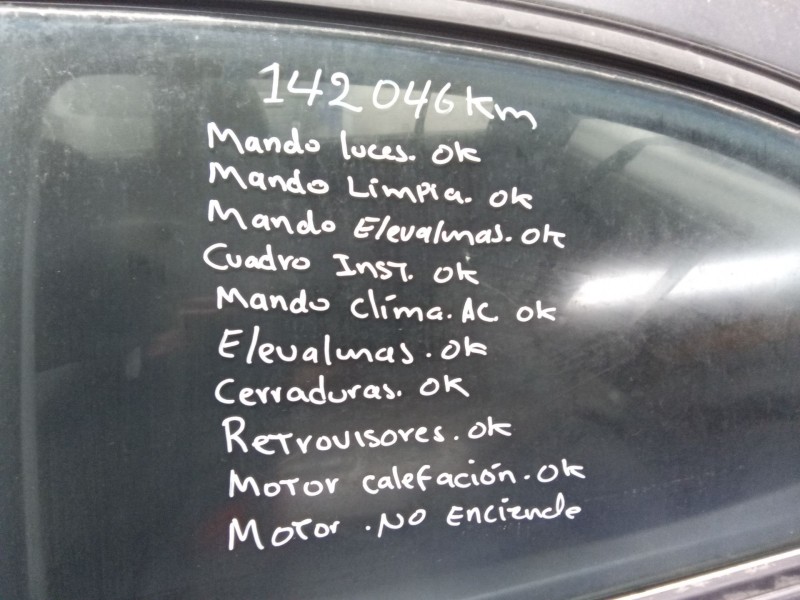 142046km
Mando luces. ok
Mando Limpia. ok
Mando Elevalunas. ok
Cuadro Inst. ok
Mando clima. AC ok
Elevalunas. ok
Cerraduras. ok
Retrovisores. ok
Motor calefación. ok
Motor. No enciende